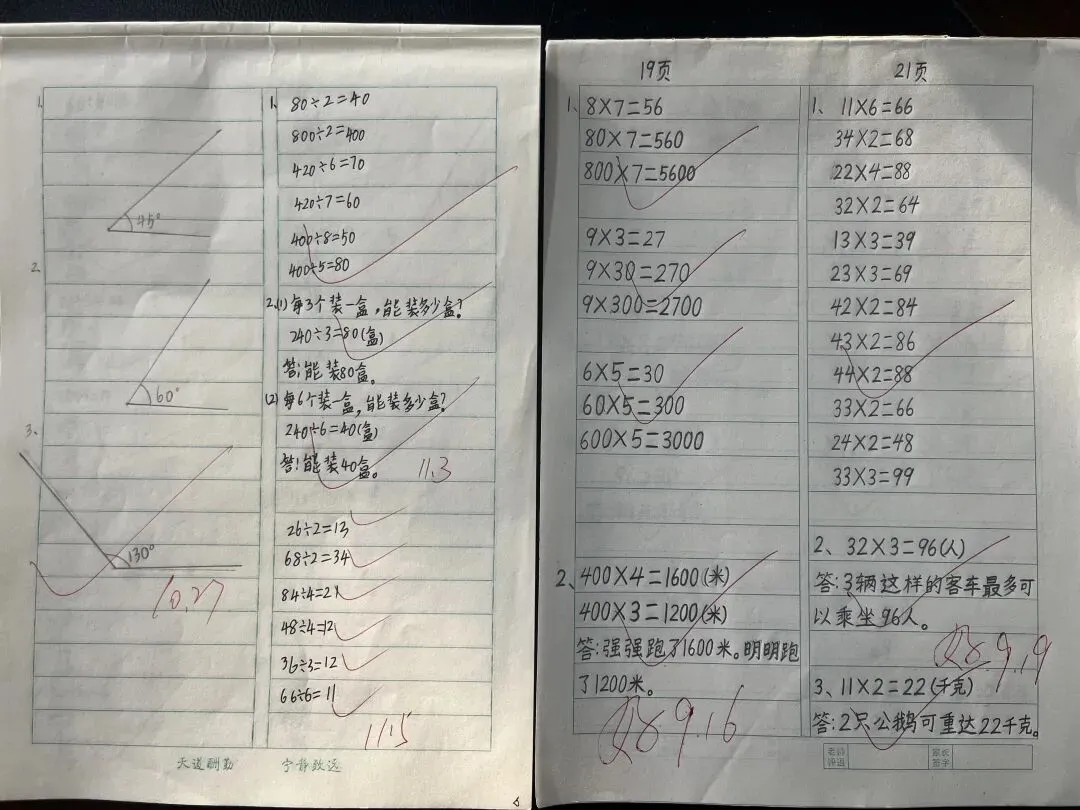 1.
45°
2.
60°
3.
130°
10.27
1、 80÷2=40
800÷2=400
420÷6=70
420÷7=60
400÷8=50
400÷5=80
2、(1) 每3个装一盒,能装多少盒?
240÷3=80(盒)
答:能装80盒。
(2) 每6个装一盒,能装多少盒?
240÷6=40(盒)
答:能装40盒。
11.3
26÷2=13
68÷2=34
84÷4=21
48÷4=12
36÷3=12
66÷6=11
11.5
天道酬勤 宁静致远
19页
1、8×7=56
80×7=560
800×7=5600
9×3=27
9×30=270
9×300=2700
6×5=30
60×5=300
600×5=3000
2、400×4=1600(米)
400×3=1200(米)
答:强强跑了1600米。明明跑
了1200米。
9.16
21页
1、11×6=66
34×2=68
22×4=88
32×2=64
13×3=39
23×3=69
42×2=84
43×2=86
44×2=88
33×2=66
24×2=48
33×3=99
2、32×3=96(人)
答:3辆这样的客车最多可
以乘坐96人。
9.19
3、11×2=22(千克)
答:2只公鹅可重达22千克。
老师
评语
家长
签字